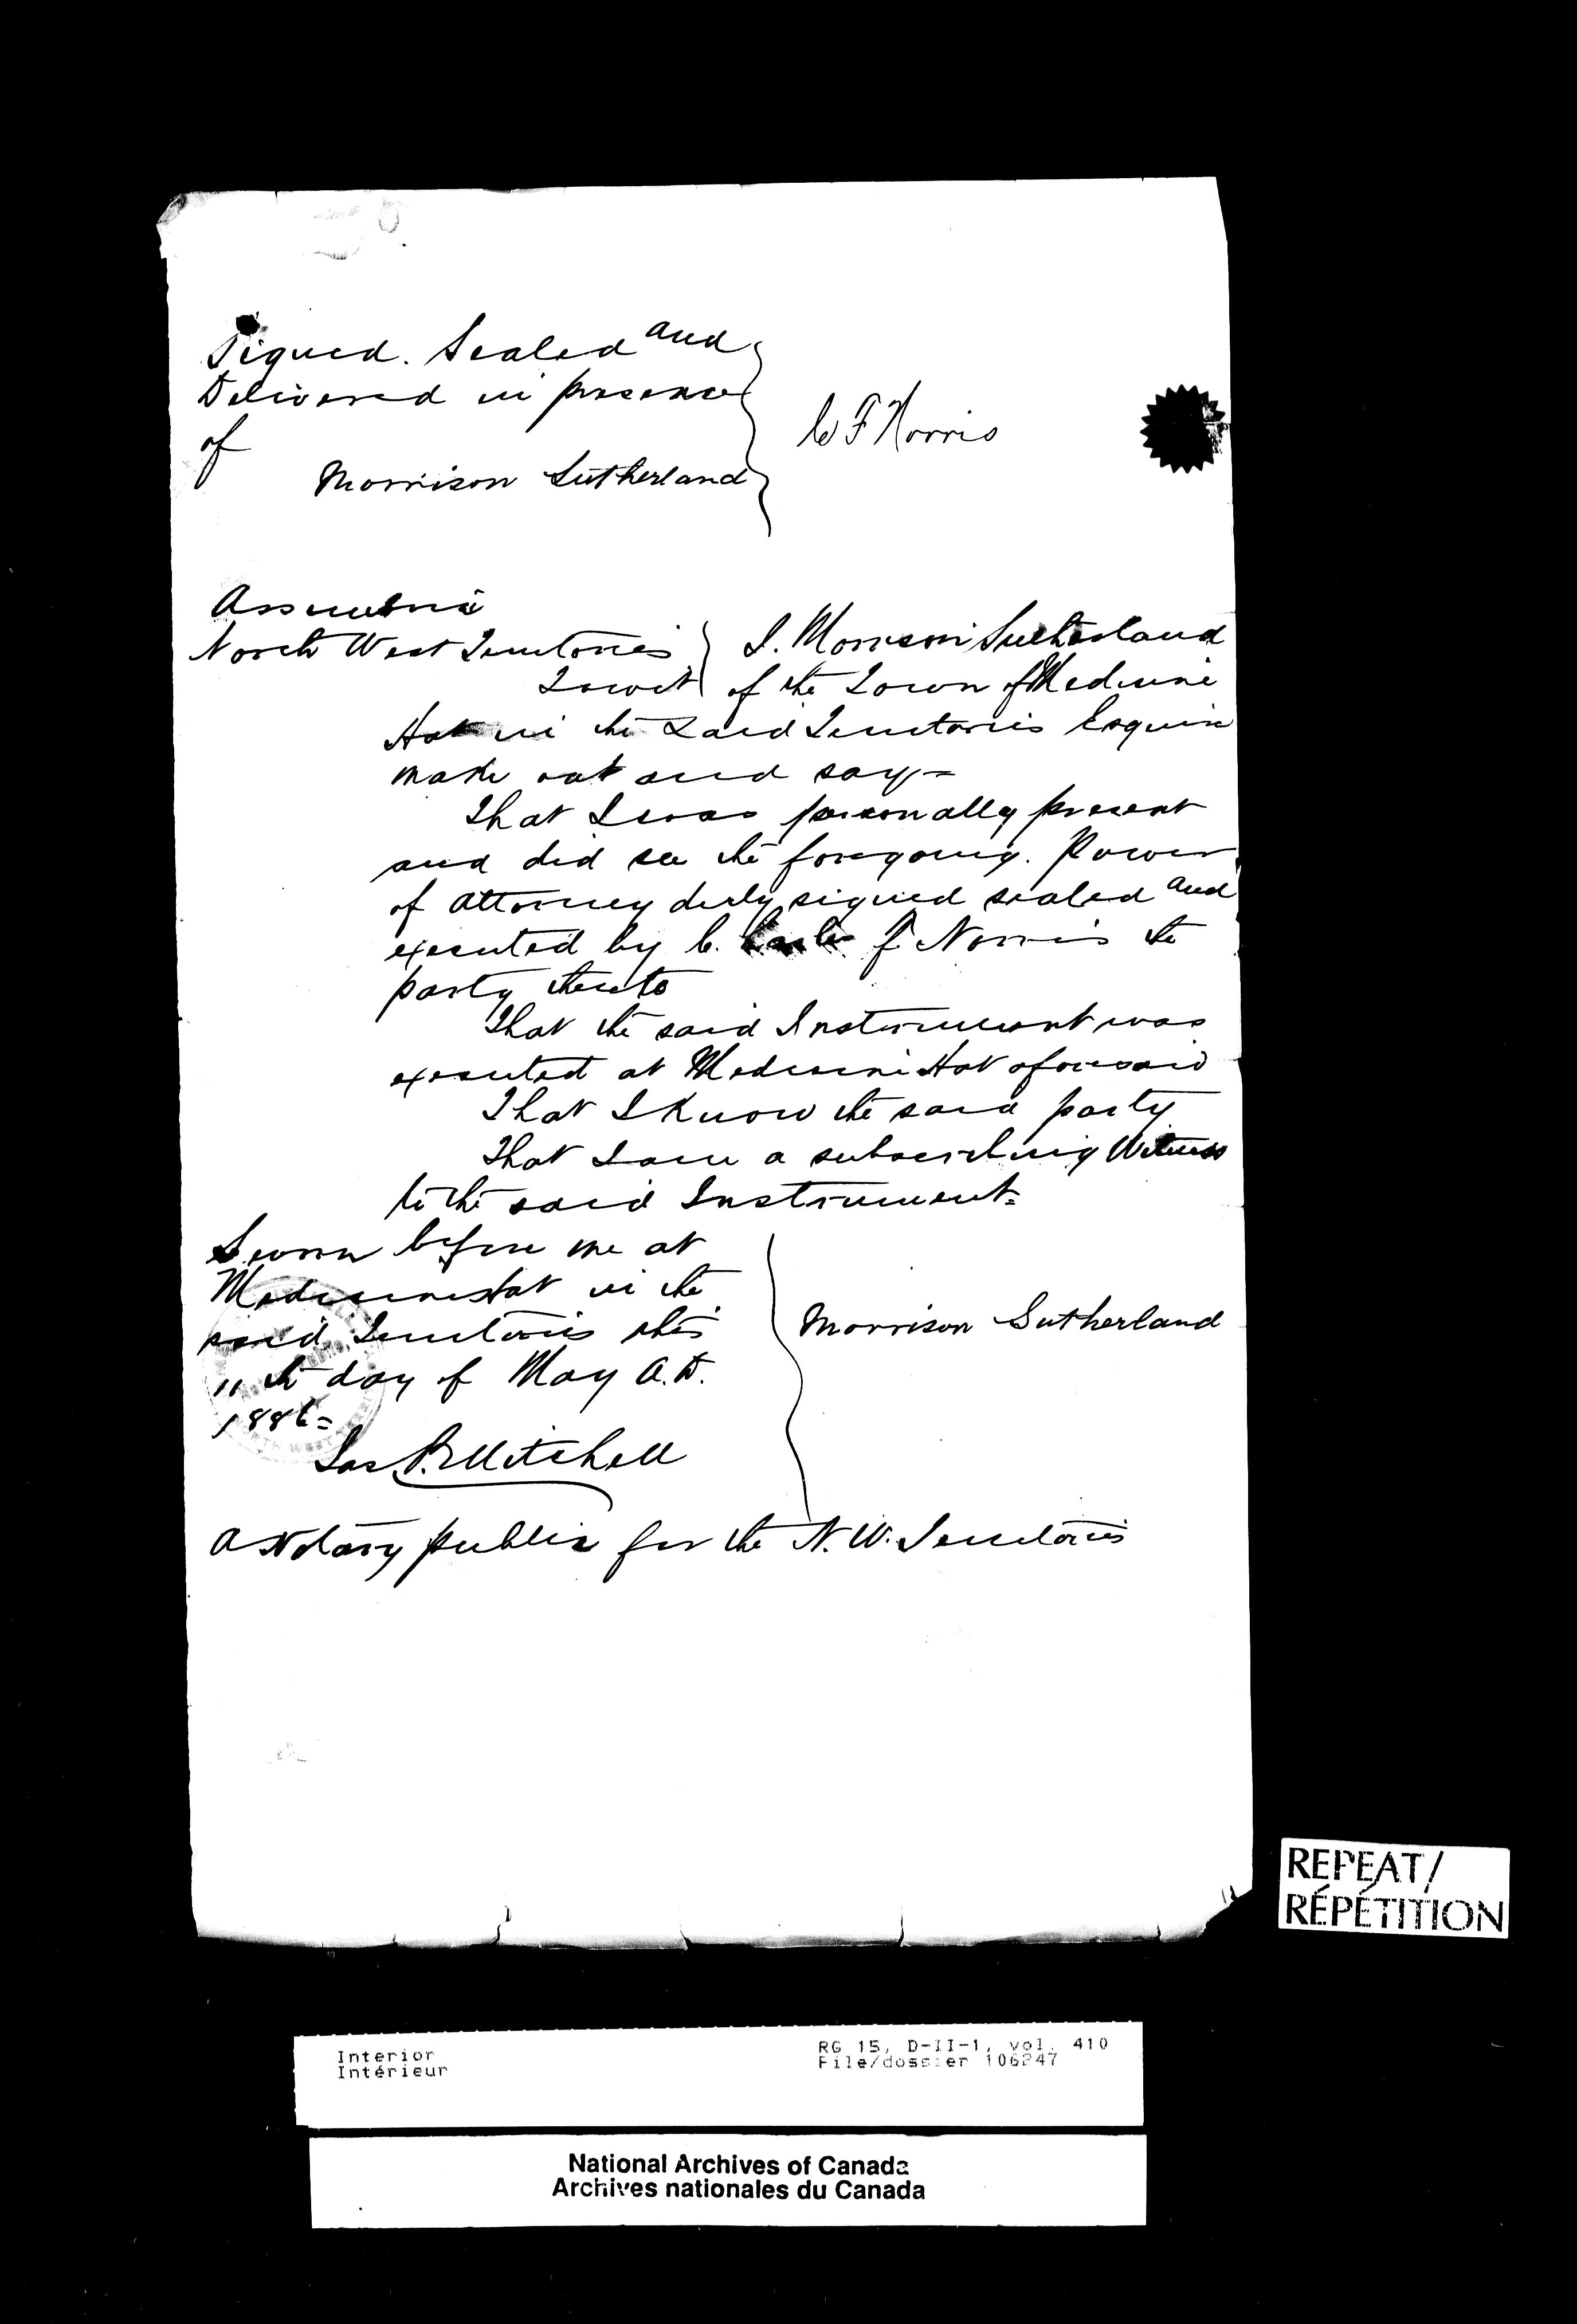 Signed. Sealed and
Delivered in presence
of
Morrison Sutherland
C F Norris
Assiniboia
North West Territories
Towit
I. Morrison Sutherland
of the Town of Medicine
Hat in the said Territories Esquire
make oat and say=
That I was personally present
and did see the foregoing. Power
of attorney duly signed sealed and
executed by C. F Norris the
party thereto
That the said Instrument was
executed at Medicine Hat aforesaid
That I know the said party
That I am a subscribing Witness
to the said Instrument=
Sworn before me at
Medicine Hat in the
said Territories this
11th day of May A.D.
1886=
Morrison Sutherland
Jas P. Mitchell
A Notary public for the N.W. Territories
REPEAT/
RÉPÉTITION
Interior
Intérieur
RG 15, D-II-1, vol. 410
File/dossier 106247
National Archives of Canada
Archives nationales du Canada